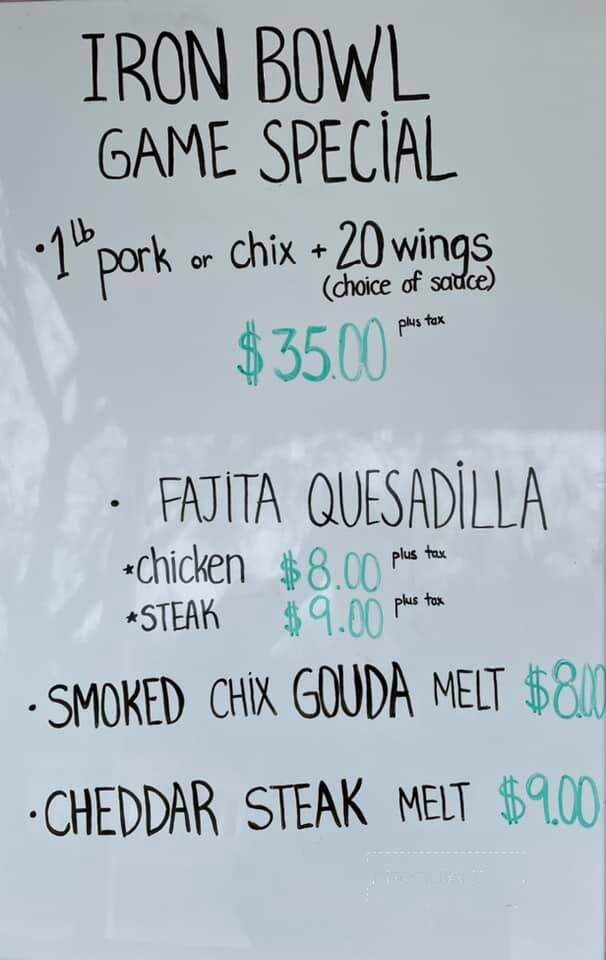 IRON BOWL
GAME SPECIAL
• 1 lb pork or chix + 20 wings
(choice of sauce)
$35.00 plus tax
• FAJITA QUESADILLA
*chicken $8.00 plus tax
*STEAK $9.00 plus tax
• SMOKED CHIX GOUDA MELT $8.00
• CHEDDAR STEAK MELT $9.00